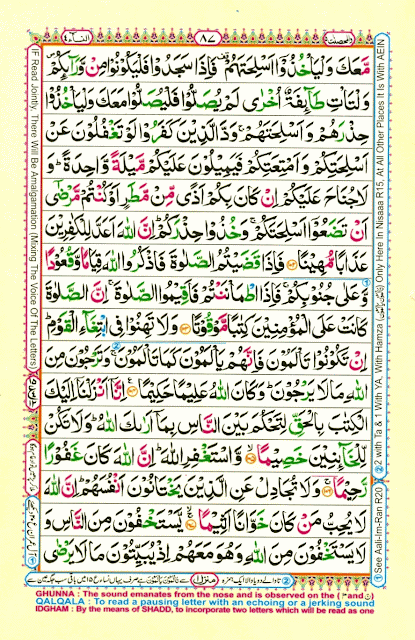 والمحصنت ٥
٨٧
النسآء ٤
مَّعَكَ وَلْيَاْخُذُوْۤا اَسْلِحَتَهُمْ فَاِذَا سَجَدُوْا فَلْيَكُوْنُوْا مِنْ وَّرَآئِكُمْ
وَلْتَاْتِ طَآئِفَةٌ اُخْرٰى لَمْ يُصَلُّوْا فَلْيُصَلُّوْا مَعَكَ وَلْيَاْخُذُوْا
حِذْرَهُمْ وَاَسْلِحَتَهُمْ ۚ وَدَّ الَّذِيْنَ كَفَرُوْا لَوْ تَغْفُلُوْنَ عَنْ
اَسْلِحَتِكُمْ وَاَمْتِعَتِكُمْ فَيَمِيْلُوْنَ عَلَيْكُمْ مَّيْلَةً وَّاحِدَةً ؕ وَ
لَا جُنَاحَ عَلَيْكُمْ اِنْ كَانَ بِكُمْ اَذًى مِّنْ مَّطَرٍ اَوْ كُنْتُمْ مَّرْضٰۤى
اَنْ تَضَعُوْۤا اَسْلِحَتَكُمْ ۚ وَخُذُوْا حِذْرَكُمْ ؕ اِنَّ اللهَ اَعَدَّ لِلْكٰفِرِيْنَ
عَذَابًا مُّهِيْنًا ۝ فَاِذَا قَضَيْتُمُ الصَّلٰوةَ فَاذْكُرُوا اللهَ قِيَامًا وَّقُعُوْدًا
وَّعَلٰى جُنُوْبِكُمْ ۚ فَاِذَا اطْمَاْنَنْتُمْ فَاَقِيْمُوا الصَّلٰوةَ ۚ اِنَّ الصَّلٰوةَ
كَانَتْ عَلَى الْمُؤْمِنِيْنَ كِتٰبًا مَّوْقُوْتًا ۝ وَلَا تَهِنُوْا فِى ابْتِغَآءِ الْقَوْمِ ؕ
اِنْ تَكُوْنُوْا تَاْلَمُوْنَ فَاِنَّهُمْ يَاْلَمُوْنَ كَمَا تَاْلَمُوْنَ ۚ وَتَرْجُوْنَ مِنَ
اللهِ مَا لَا يَرْجُوْنَ ؕ وَكَانَ اللهُ عَلِيْمًا حَكِيْمًا ۝ اِنَّاۤ اَنْزَلْنَاۤ اِلَيْكَ
الْكِتٰبَ بِالْحَقِّ لِتَحْكُمَ بَيْنَ النَّاسِ بِمَاۤ اَرٰىكَ اللهُ ؕ وَلَا تَكُنْ
لِّلْخَآئِنِيْنَ خَصِيْمًا ۝ وَّاسْتَغْفِرِ اللهَ ؕ اِنَّ اللهَ كَانَ غَفُوْرًا
رَّحِيْمًا ۝ وَلَا تُجَادِلْ عَنِ الَّذِيْنَ يَخْتَانُوْنَ اَنْفُسَهُمْ ؕ اِنَّ اللهَ
لَا يُحِبُّ مَنْ كَانَ خَوَّانًا اَثِيْمًا ۝ يَّسْتَخْفُوْنَ مِنَ النَّاسِ وَ
لَا يَسْتَخْفُوْنَ مِنَ اللهِ وَهُوَ مَعَهُمْ اِذْ يُبَيِّتُوْنَ مَا لَا يَرْضٰى
منزل ١
IF Read Jointly, There Will Be Amalgamation (Mixing The Voice Of The Letters)
① See Aali-Im-Ran R20 ② 2 with Ta & 1 With YA, With Hamza Only Here In Nisaaa R15, At All Other Places It Is With AEIN
GHUNNA : The sound emanates from the nose and is observed on the (م and ن)
QALQALA : To read a pausing letter with an echoing or a jerking sound
IDGHAM : By the means of SHADD, to incorporate two letters which will be read as one